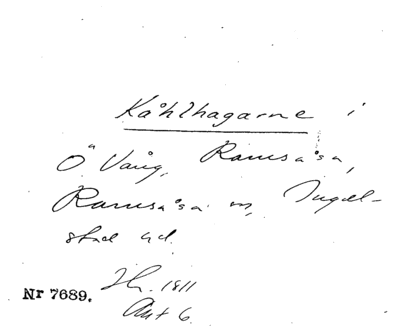 Kåhlhagarne i
Ö Vång, Ramsåsa,
Ramsåsa sn, Ingel-
stad hd.
Nr 7689.
1811
Akt 6.